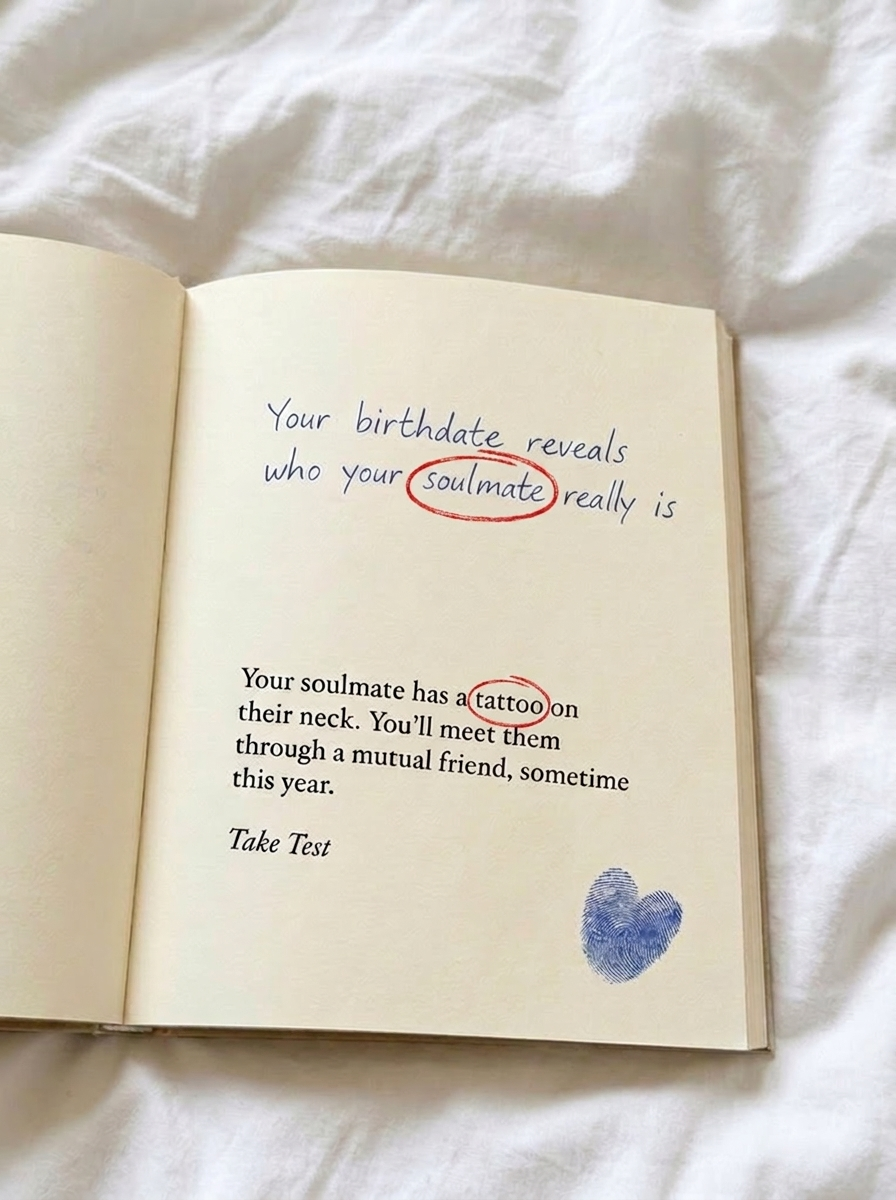 Your birthdate reveals
who your soulmate really is
Your soulmate has a tattoo on
their neck. You'll meet them
through a mutual friend, sometime
this year.
Take Test